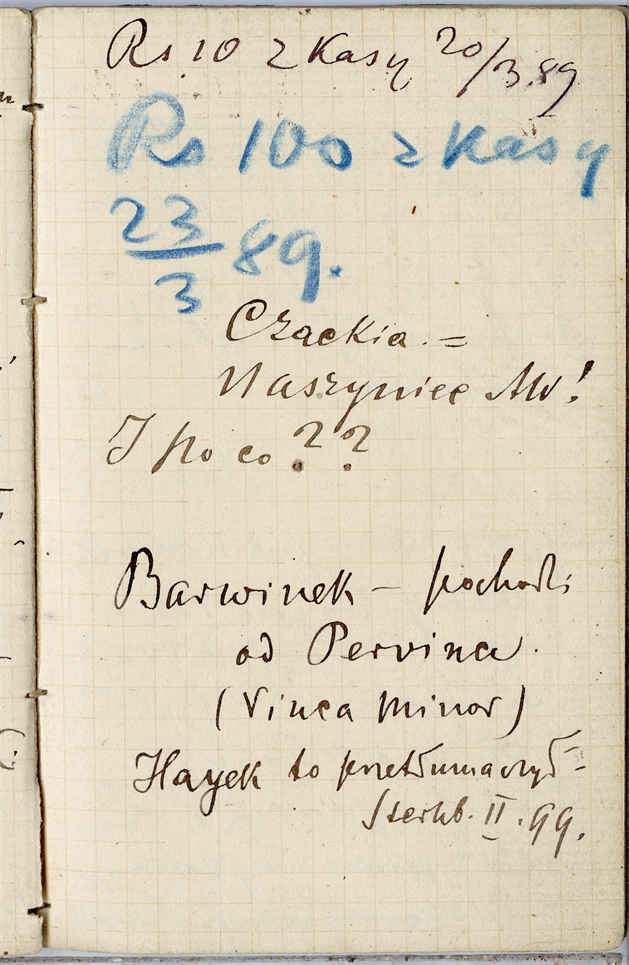 Rs 10 z Kasy 20/3 89
Rs 100 z kasy
23/3 89.
Czackia. =
Naszyniec Mv!
I po co??
Barwinek – pochodzi
od Pervinca.
(Vinca minor)
Hayek to przetłumaczył –
Sternb. II. 99.